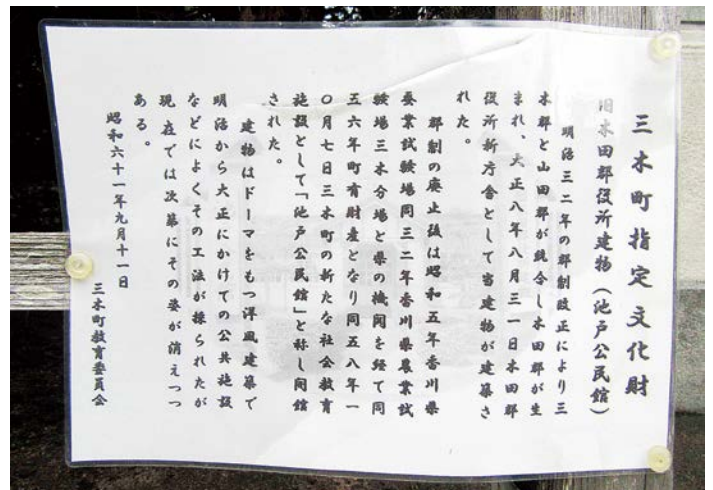 三木町指定文化財
旧木田郡役所建物（池戸公民館）
明治三二年の郡制改正により三
木郡と山田郡が統合し木田郡が生
まれ、大正八年八月三一日木田郡
役所新庁舎として当建物が建築さ
れた。
郡制の廃止後は昭和五年香川県
蚕業試験場同三二年香川県農業試
験場三木分場と県の機関を経て同
五六年町有財産となり同五八年一
〇月七日三木町の新たな社会教育
施設として「池戸公民館」と称し開館
された。
建物はドーマをもつ洋風建築で
明治から大正にかけての公共施設
などによくその工法が採られたが
現在では次第にその姿が消えつつ
ある。
昭和六十一年九月十一日
三木町教育委員会